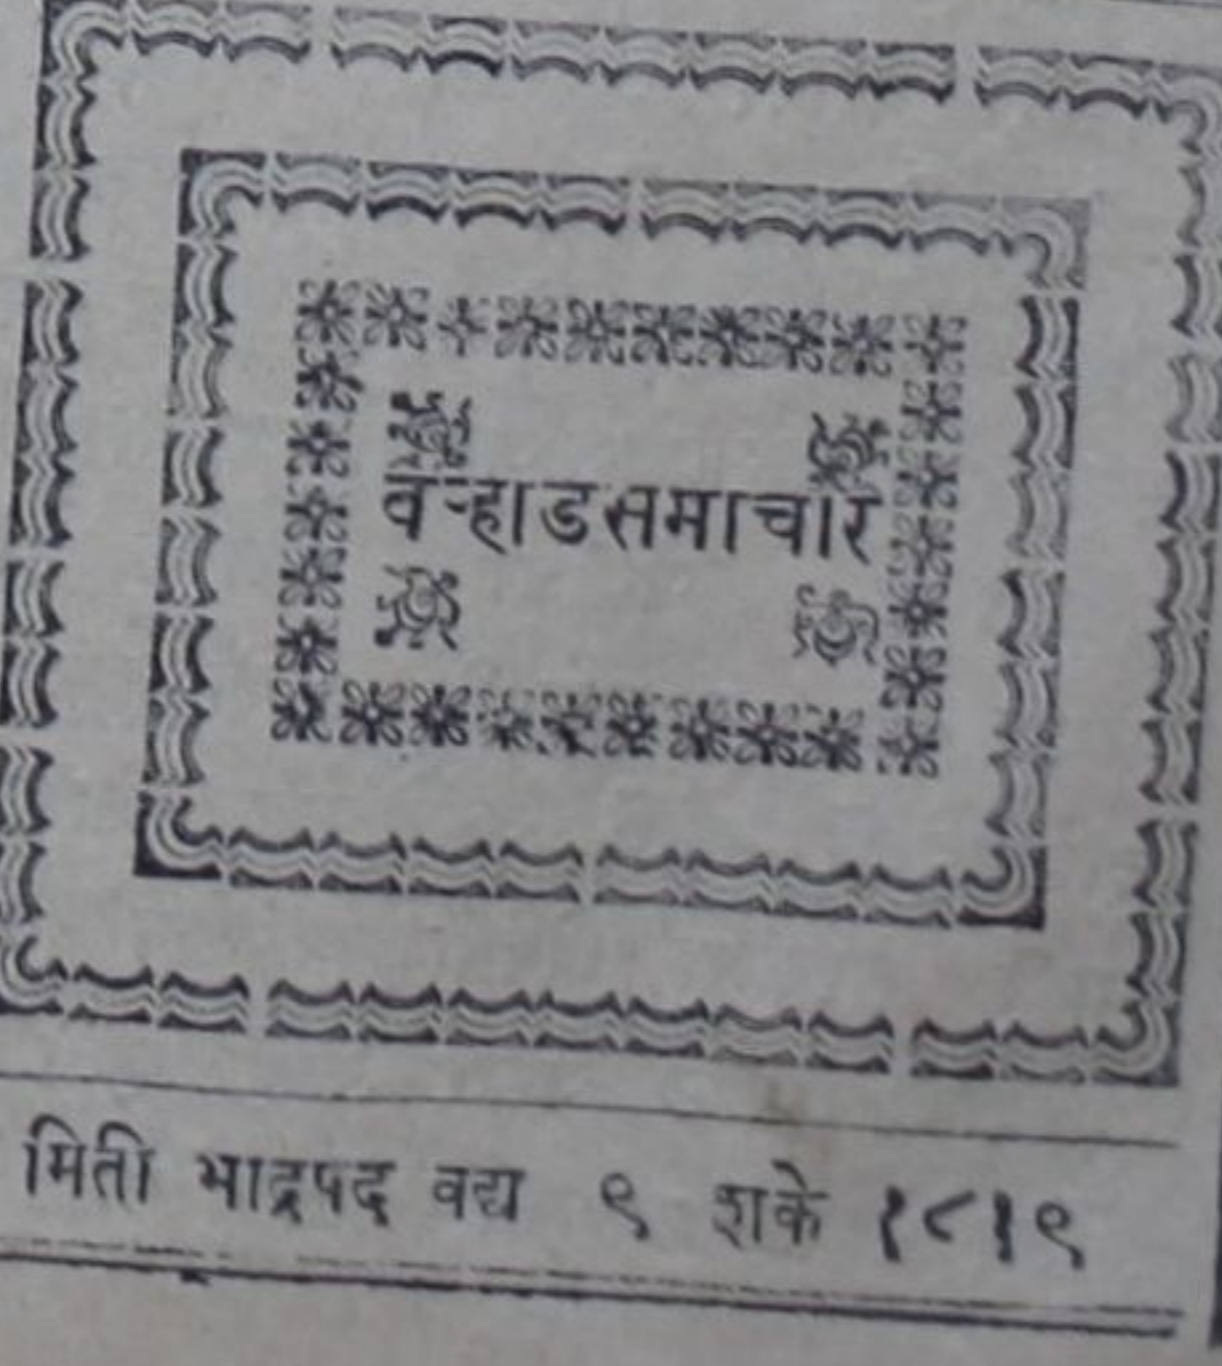 वऱ्हाडसमाचार
मिती भाद्रपद वद्य ९ शके १८१९